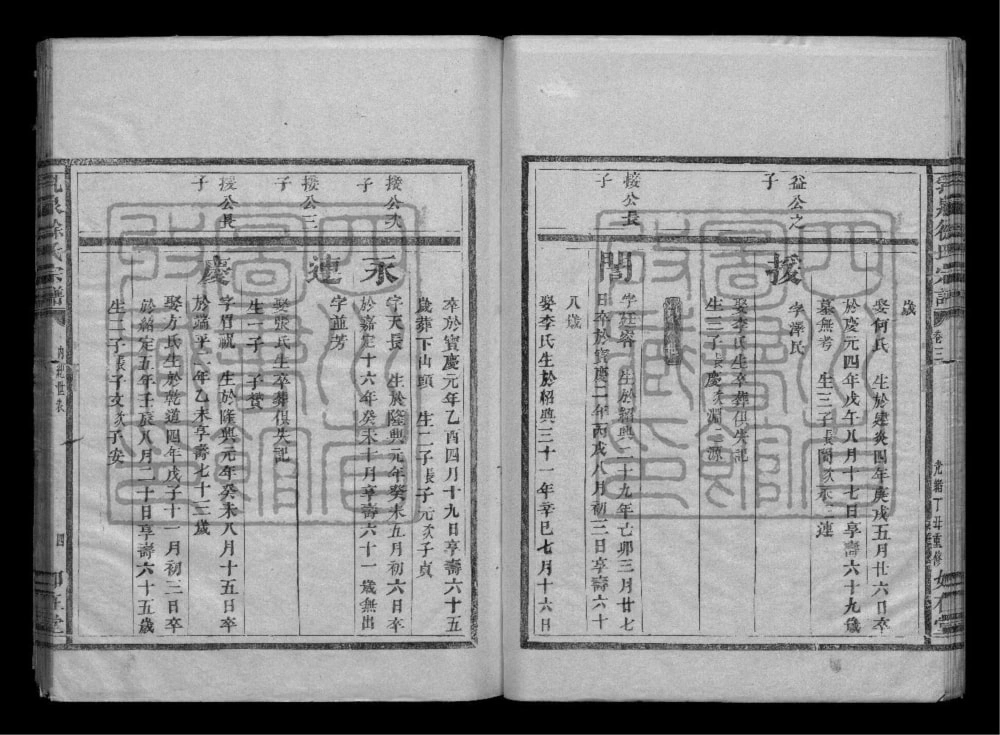 徐氏宗譜
卷三
光緒丁丑重修
歲
娶何氏 生於建炎四年庚戌五月廿六日卒
於慶元四年戊午八月十七日享壽六十九歲
墓無考 生三子長閭次永三連
益公之
子
援
字澤民
娶李氏生卒葬俱失記
生三子長慶次淵三源
接公長
子
閭
生於紹興二十九年亡卯三月廿七
日卒於寶慶二年丙戌八月初三日享壽六十
八歲
娶李氏生於紹興三十一年辛巳七月十六日
卒於寶慶元年乙酉四月十九日享壽六十五
歲葬下山頭 生二子長子元次子貞
接公次
子
永
字天長 生於隆興元年癸未五月初六日卒
於嘉定十六年癸未十月享壽六十一歲無出
接公三
子
連
字並芳
娶張氏生卒葬俱失記
生一子 子贊
援公長
子
慶
生於隆興元年癸未八月十五日卒
於端平二年乙未享壽七十三歲
娶方氏生於乾道四年戊子十一月初三日卒
於紹定五年壬辰八月二十日享壽六十五歲
生二子長子文次子安
徐氏宗譜
内紀世表
四